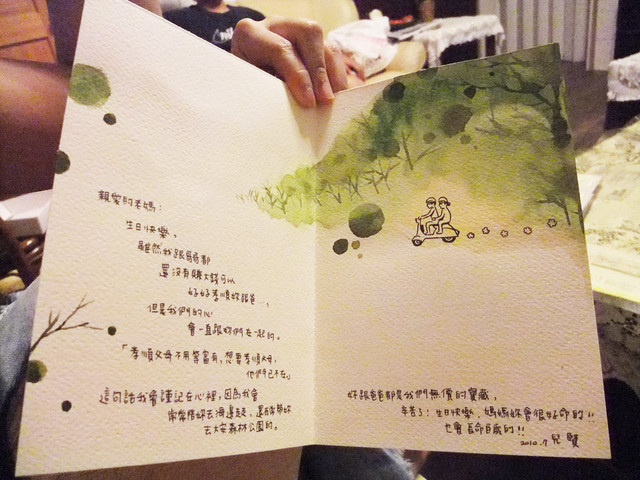 親愛的老媽：
生日快樂。
雖然我跟哥哥都
還沒有賺大錢可以
好好孝順妳跟爸…，
但是我們的心
會一直跟妳們在一起的。
「孝順父母不用等富有，想要孝順父母，
他們早已不在。」
這句話我會謹記在心裡，因為我會
常常陪妳去海邊走，
去大安森林公園的。
妳跟爸爸都是我們無價的寶藏，
辛苦了！生日快樂，媽媽妳會很好命的!!
也會長命百歲的!!
2010.9 兒 賢